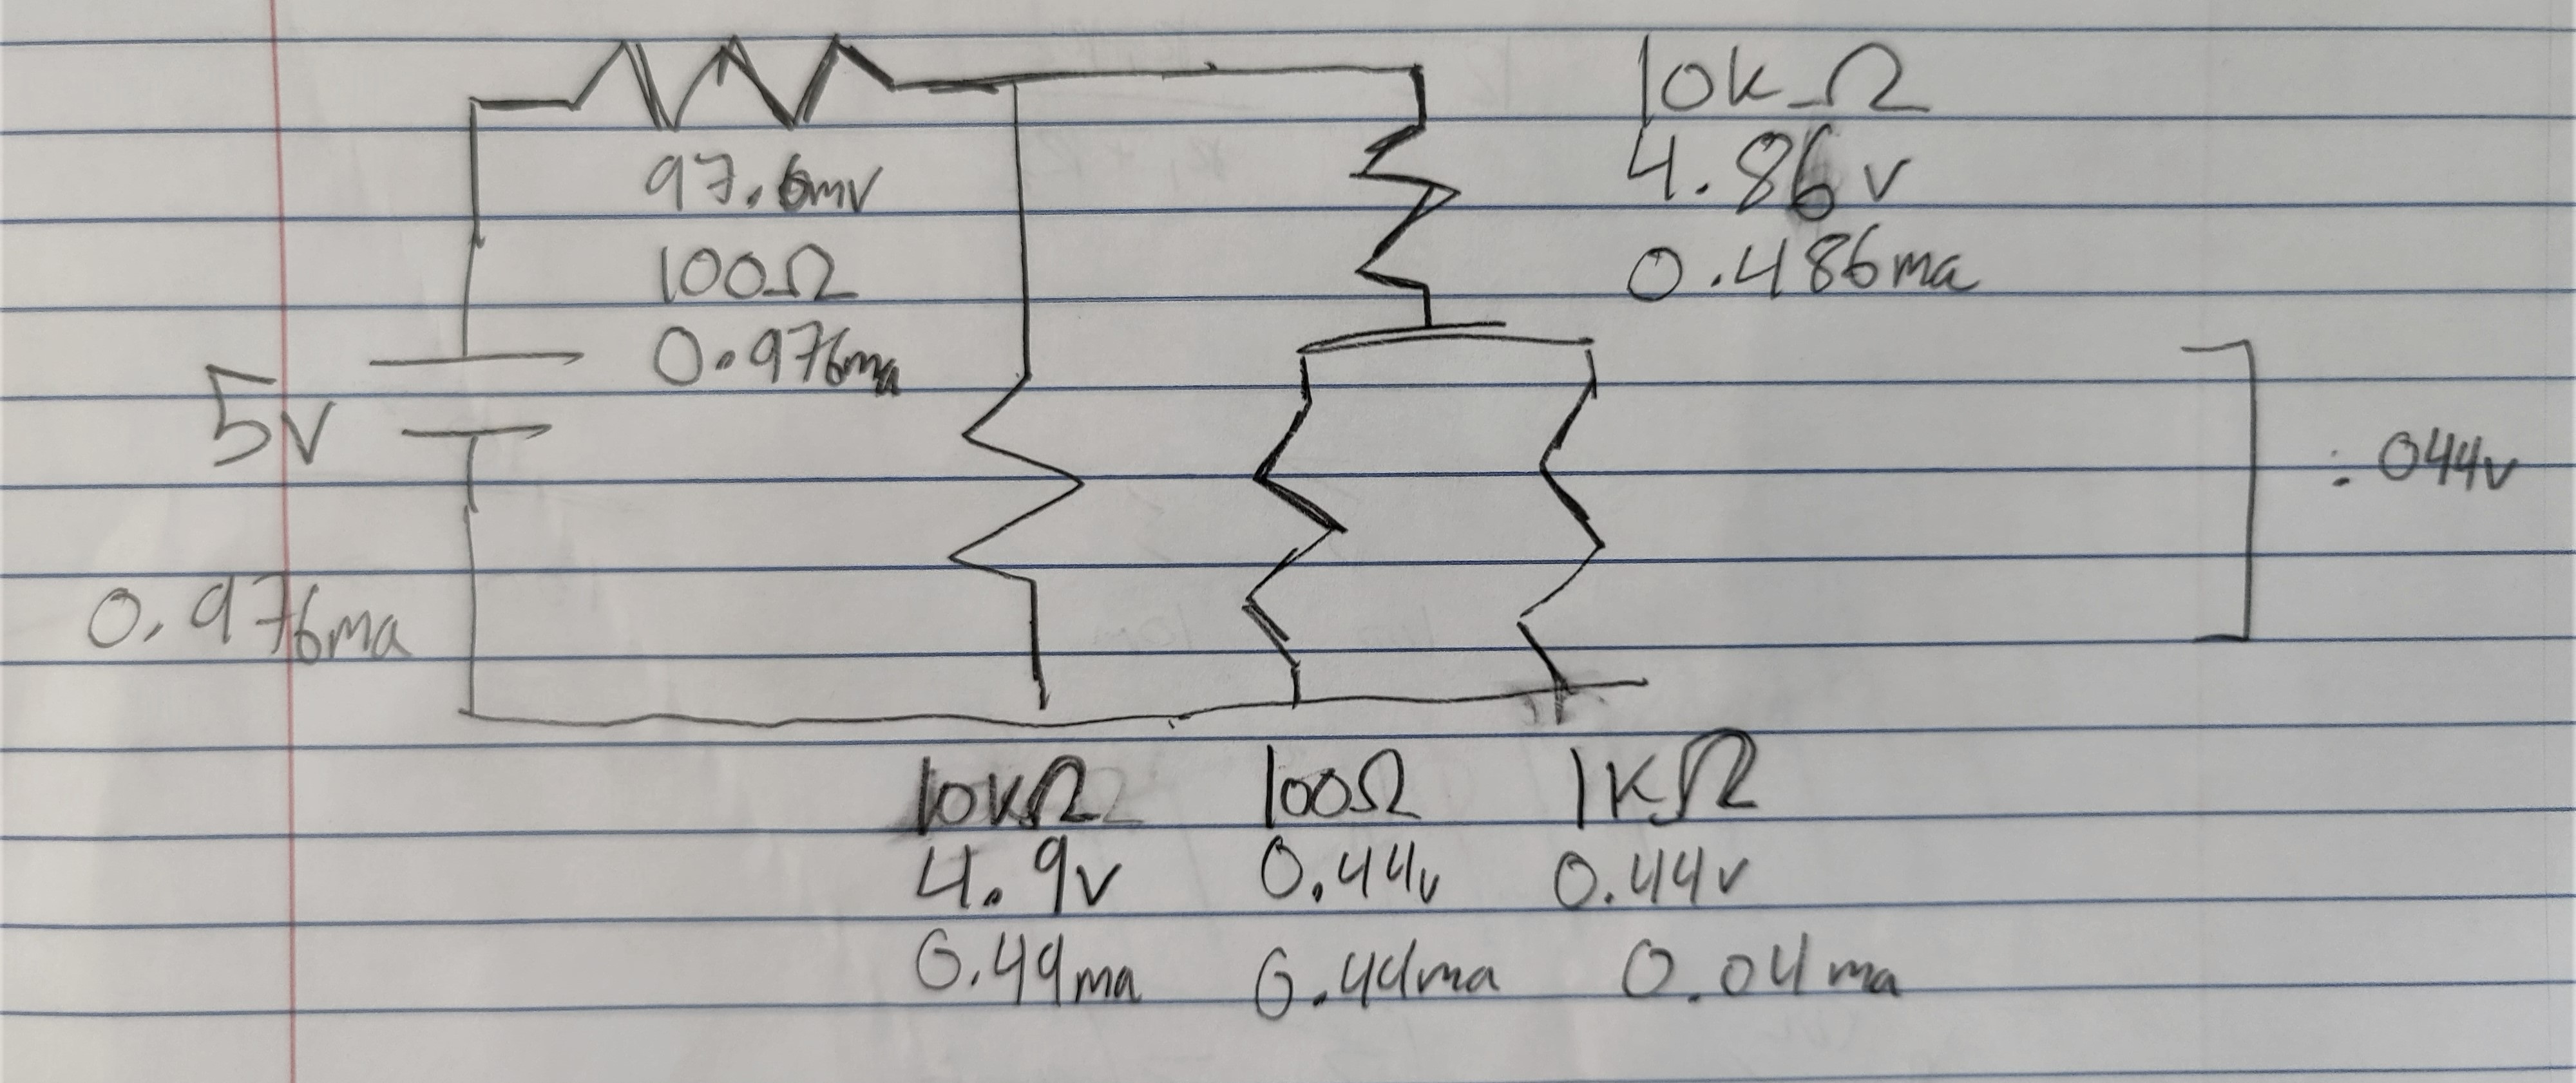 97.6mv
100Ω
0.976ma
10kΩ
4.86v
0.486ma
5v
0.976ma
.044v
10kΩ
4.9v
0.49ma
100Ω
0.44v
0.44ma
1KΩ
0.44v
0.04ma